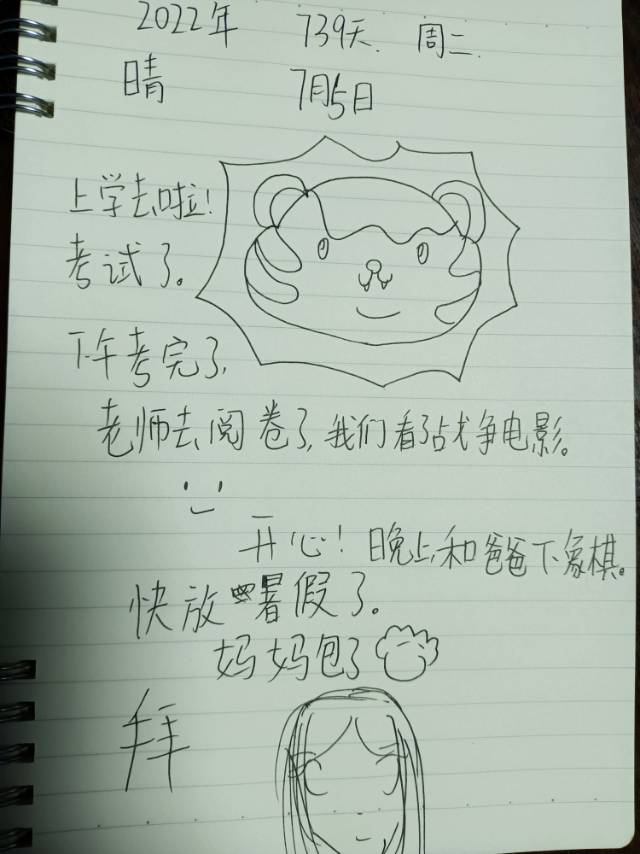 2022年 739天. 周二.
晴 7月5日
上学去啦!
考试了。
下午考完了,
老师去阅卷了,我们看了战争电影。
开心!晚上和爸爸下象棋。
快放暑假了。
妈妈包了
拜